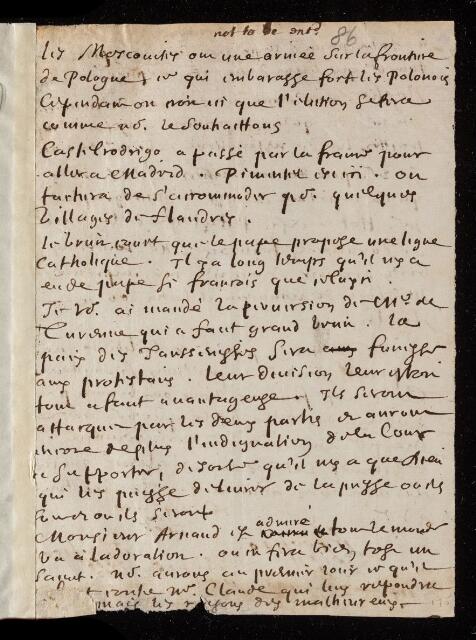 not to be entd
86
les Moscovites ont une armée sur la frontiere
de Pologne, ce qui embarasse fort les Polonois
Cependant on croit ici que l'election se fera
comme no. le souhaittons
Castelrodrigo a passé par la france pour
aller a Madrid. Pimentel est ici. on
taschera de s'accommoder pr. quelques
villages de flandres.
le bruit court que le pape propose une ligue
Catholique. Il y a long temps qu'il n'y a
eu de pape si francois que celuyci
Je vo. ai mandé la conversion de Mr. de
Turenne qui a faut grand bruit. la
paix des Jansenistes sera funeste
aux protestans. leur division leur estoit
tout a faut avantageuse. Ils seront
attaqués par les deux partis et auront
encore de plus l'indignation de la Cour
a supporter, de sorte qu'il n'y a que Dieu
qui les puisse delivrer de la presse ou ils
sont ou ils seront
Monsieur Arnaud est admiré tout le monde
va a l'adoration. on en fera bien tost un
saint. no. aurons au premier jour ce qu'il
contre Mr. Claude qui luy repondra
mais les raisons des malheureux